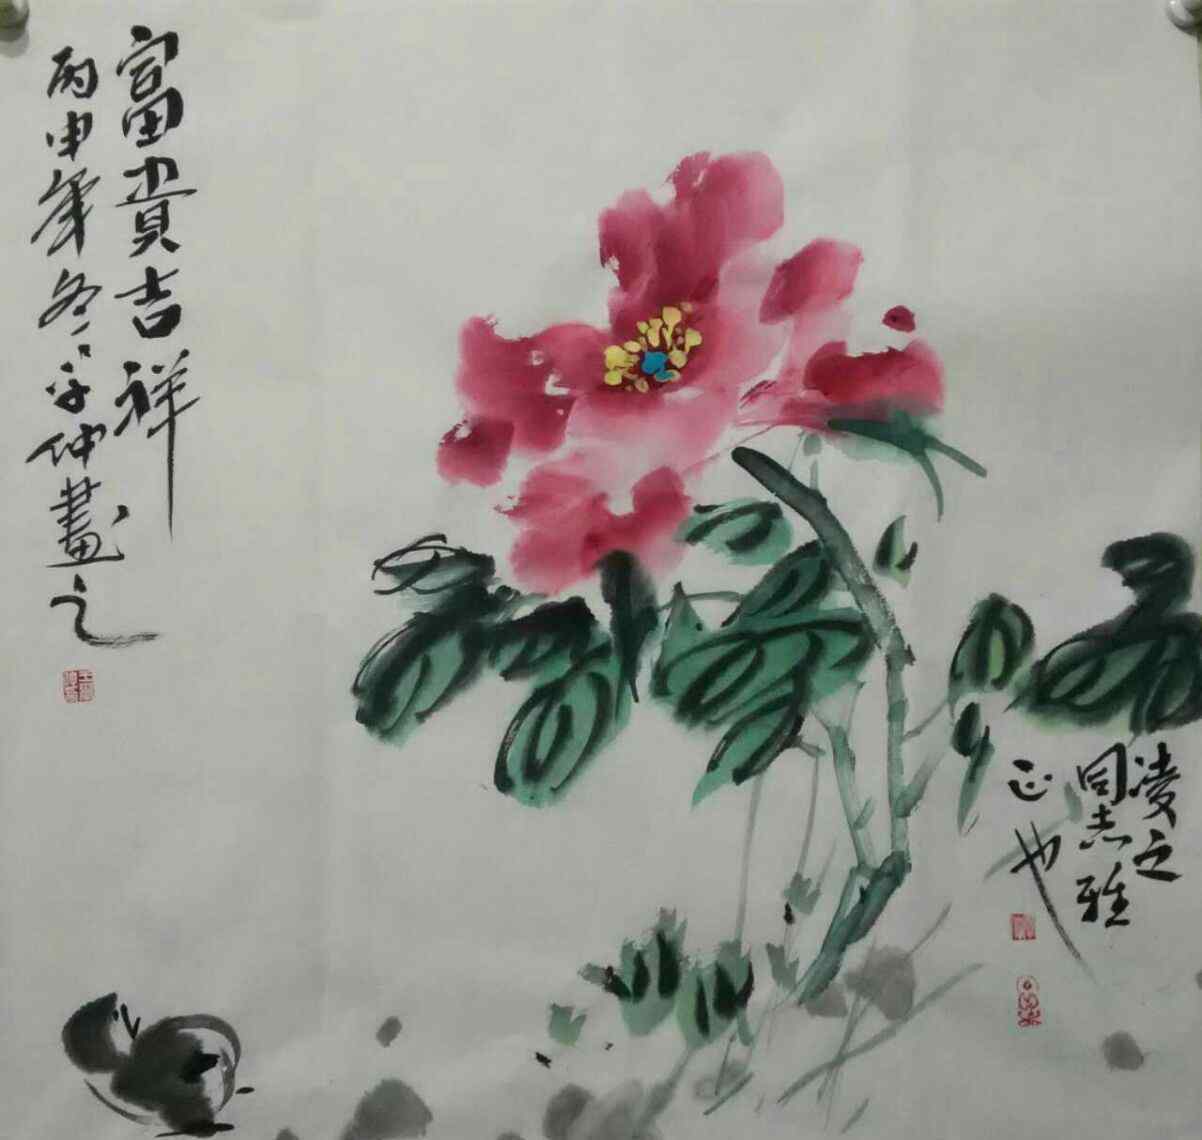 富貴吉祥
丙申年冬守仲畫之
凌之
同志雅
正也